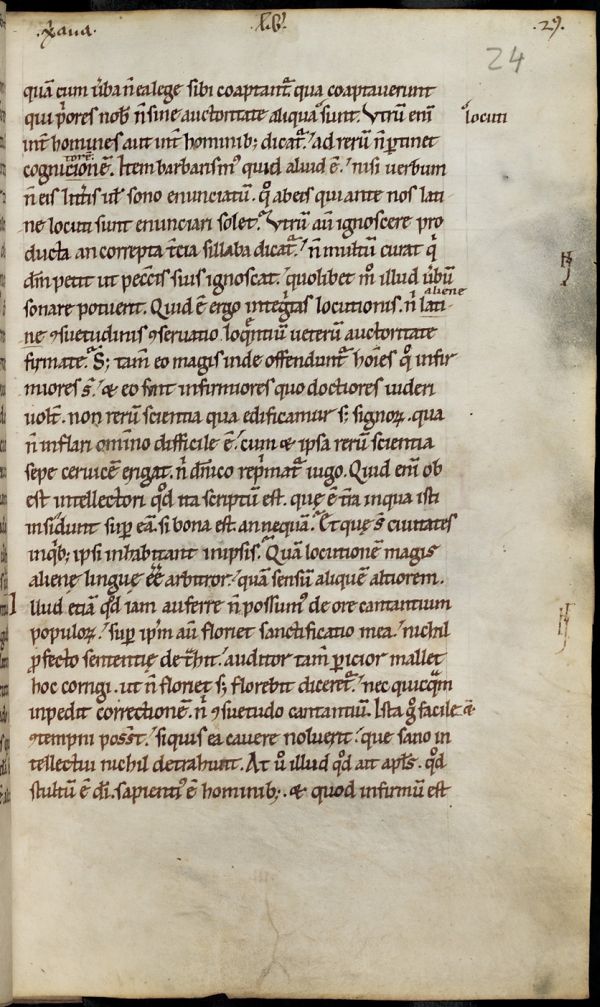 ·xp̄iana· ·lib̾· ·29·
24
quā cum v̾ba n̄ ea lege sibi coaptant᷑ qua coaptaverunt
qui p̾ores nob̄ n̄ sine auctoritate aliqua sunt. Vtrū eni̅
locuti
int̄ homines aut int̄ hominib; dicat᷑. ad rerū n̄ p̱tinet
cognitionē. Item barbarism᷒ quid aliud ē. nisi verbum
n̄ eis litt̄is ul̄ sono enunciatū. q̊ ab eis qui ante nos lati-
ne locuti sunt enunciari solet. Vtrū aū ignoscere pro
ducta an correpta t̄cia sillaba dicat᷑. n̄ multū curat q̇
dm̄ petit ut pecc̄is suis ignoscat. quolibet m̊ illud v̾bū
sonare potuerit. Quid ē ergo integ̾tas locutionis. n̄ lati-
aliene
ne ꝯsuetudinis ꝯservatio loq̄ntiū veterū auctoritate
firmate. S; tam̄ eo magis inde offendunt᷑ hoīes q̊ infir
miores s̄. & eo sunt infirmiores quo doctiores videri
volt̄. non rerū scientia qua edificamur s; signoꝝ. qua
n̄ inflari omīno difficile ē. cum & ipsa rerū scientia
sepe cervicē erigat. n̄ dn̄ico rep̾mat᷑ iugo. Quid eni̅ ob
est intellectori qd̄ ita scriptū est. quę ē t̄ra in qua isti
insidunt sup̱ eā. si bona est an nequā. Et quę s̄ civitates
in q̇b; ip̄si inhabitant in ipsis. Quā locutionē magis
alienę linguę ēē arbitror. quā sensū aliquē altiorem.
Illud etiā qd̄ iam auferre n̄ possum᷒ de ore cantantium
populoꝝ. sup̱ ip̄m aū floriet sanctificatio mea. nichil
ꝓfecto sententię det̾hit. auditor tam̄ p̱icior mallet
hoc corrigi. ut n̄ floriet s; florebit diceret᷑. nec quicq̄m
inpedit correctionē. n̄ ꝯsuetudo cantantiū. Ista g̊ facile &
ꝯtempni poss̄t. si quis ea cavere noluerit. que sano in
tellectui nichil detrahunt. At v̊ illud qd̄ ait apl̄s. qd̄
stultū ē dī. sapienti᷒ ē hominib;. & quod infirmū est